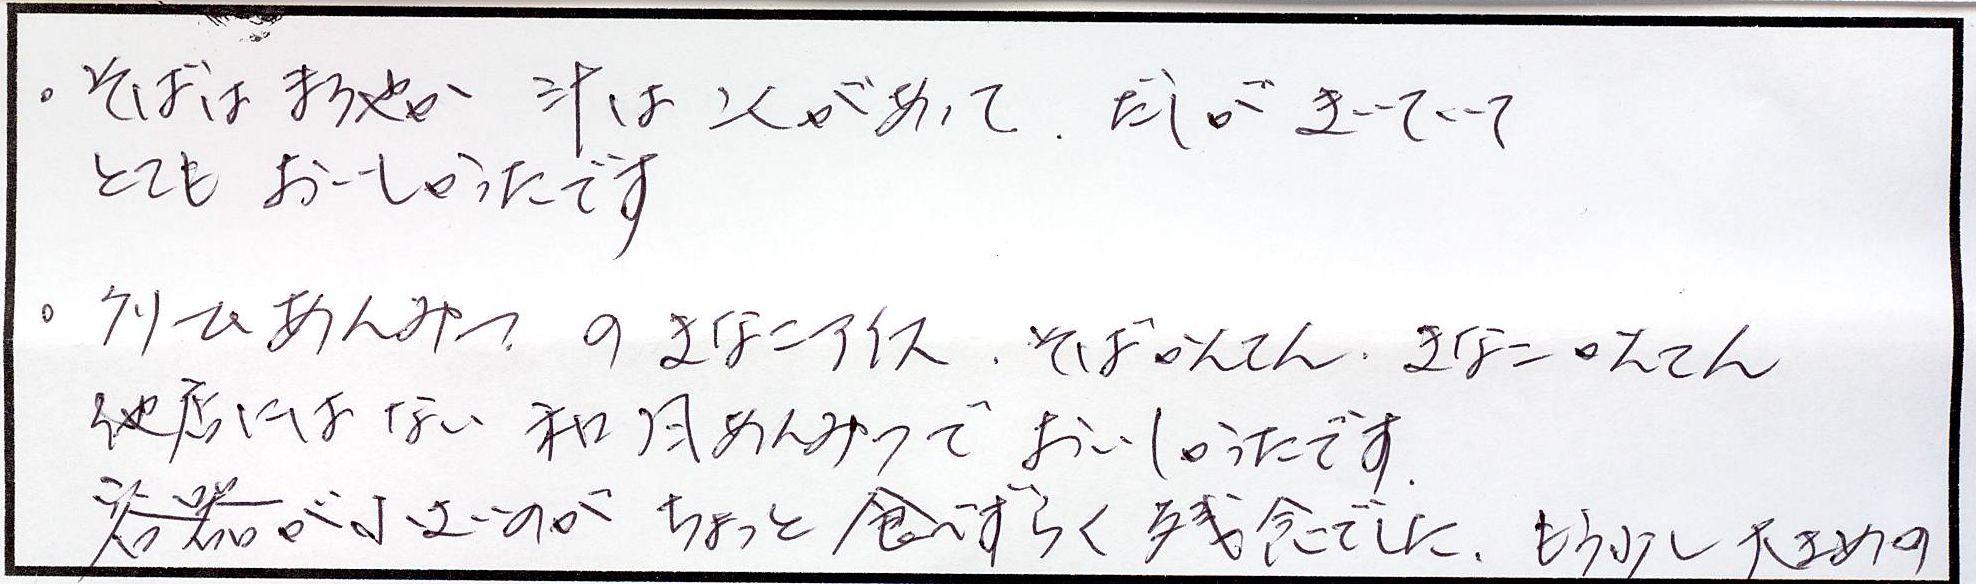 ・そばはまろやか 汁はコクがあって、だしがきいていて
とてもおいしかったです
・クリームあんみつのきなこアイス、そばかんてん、きなこかんてん
他店にはない和風あんみつでおいしかったです。
容器が小さいのがちょっと食べずらく残念でした。もう少し大きめの